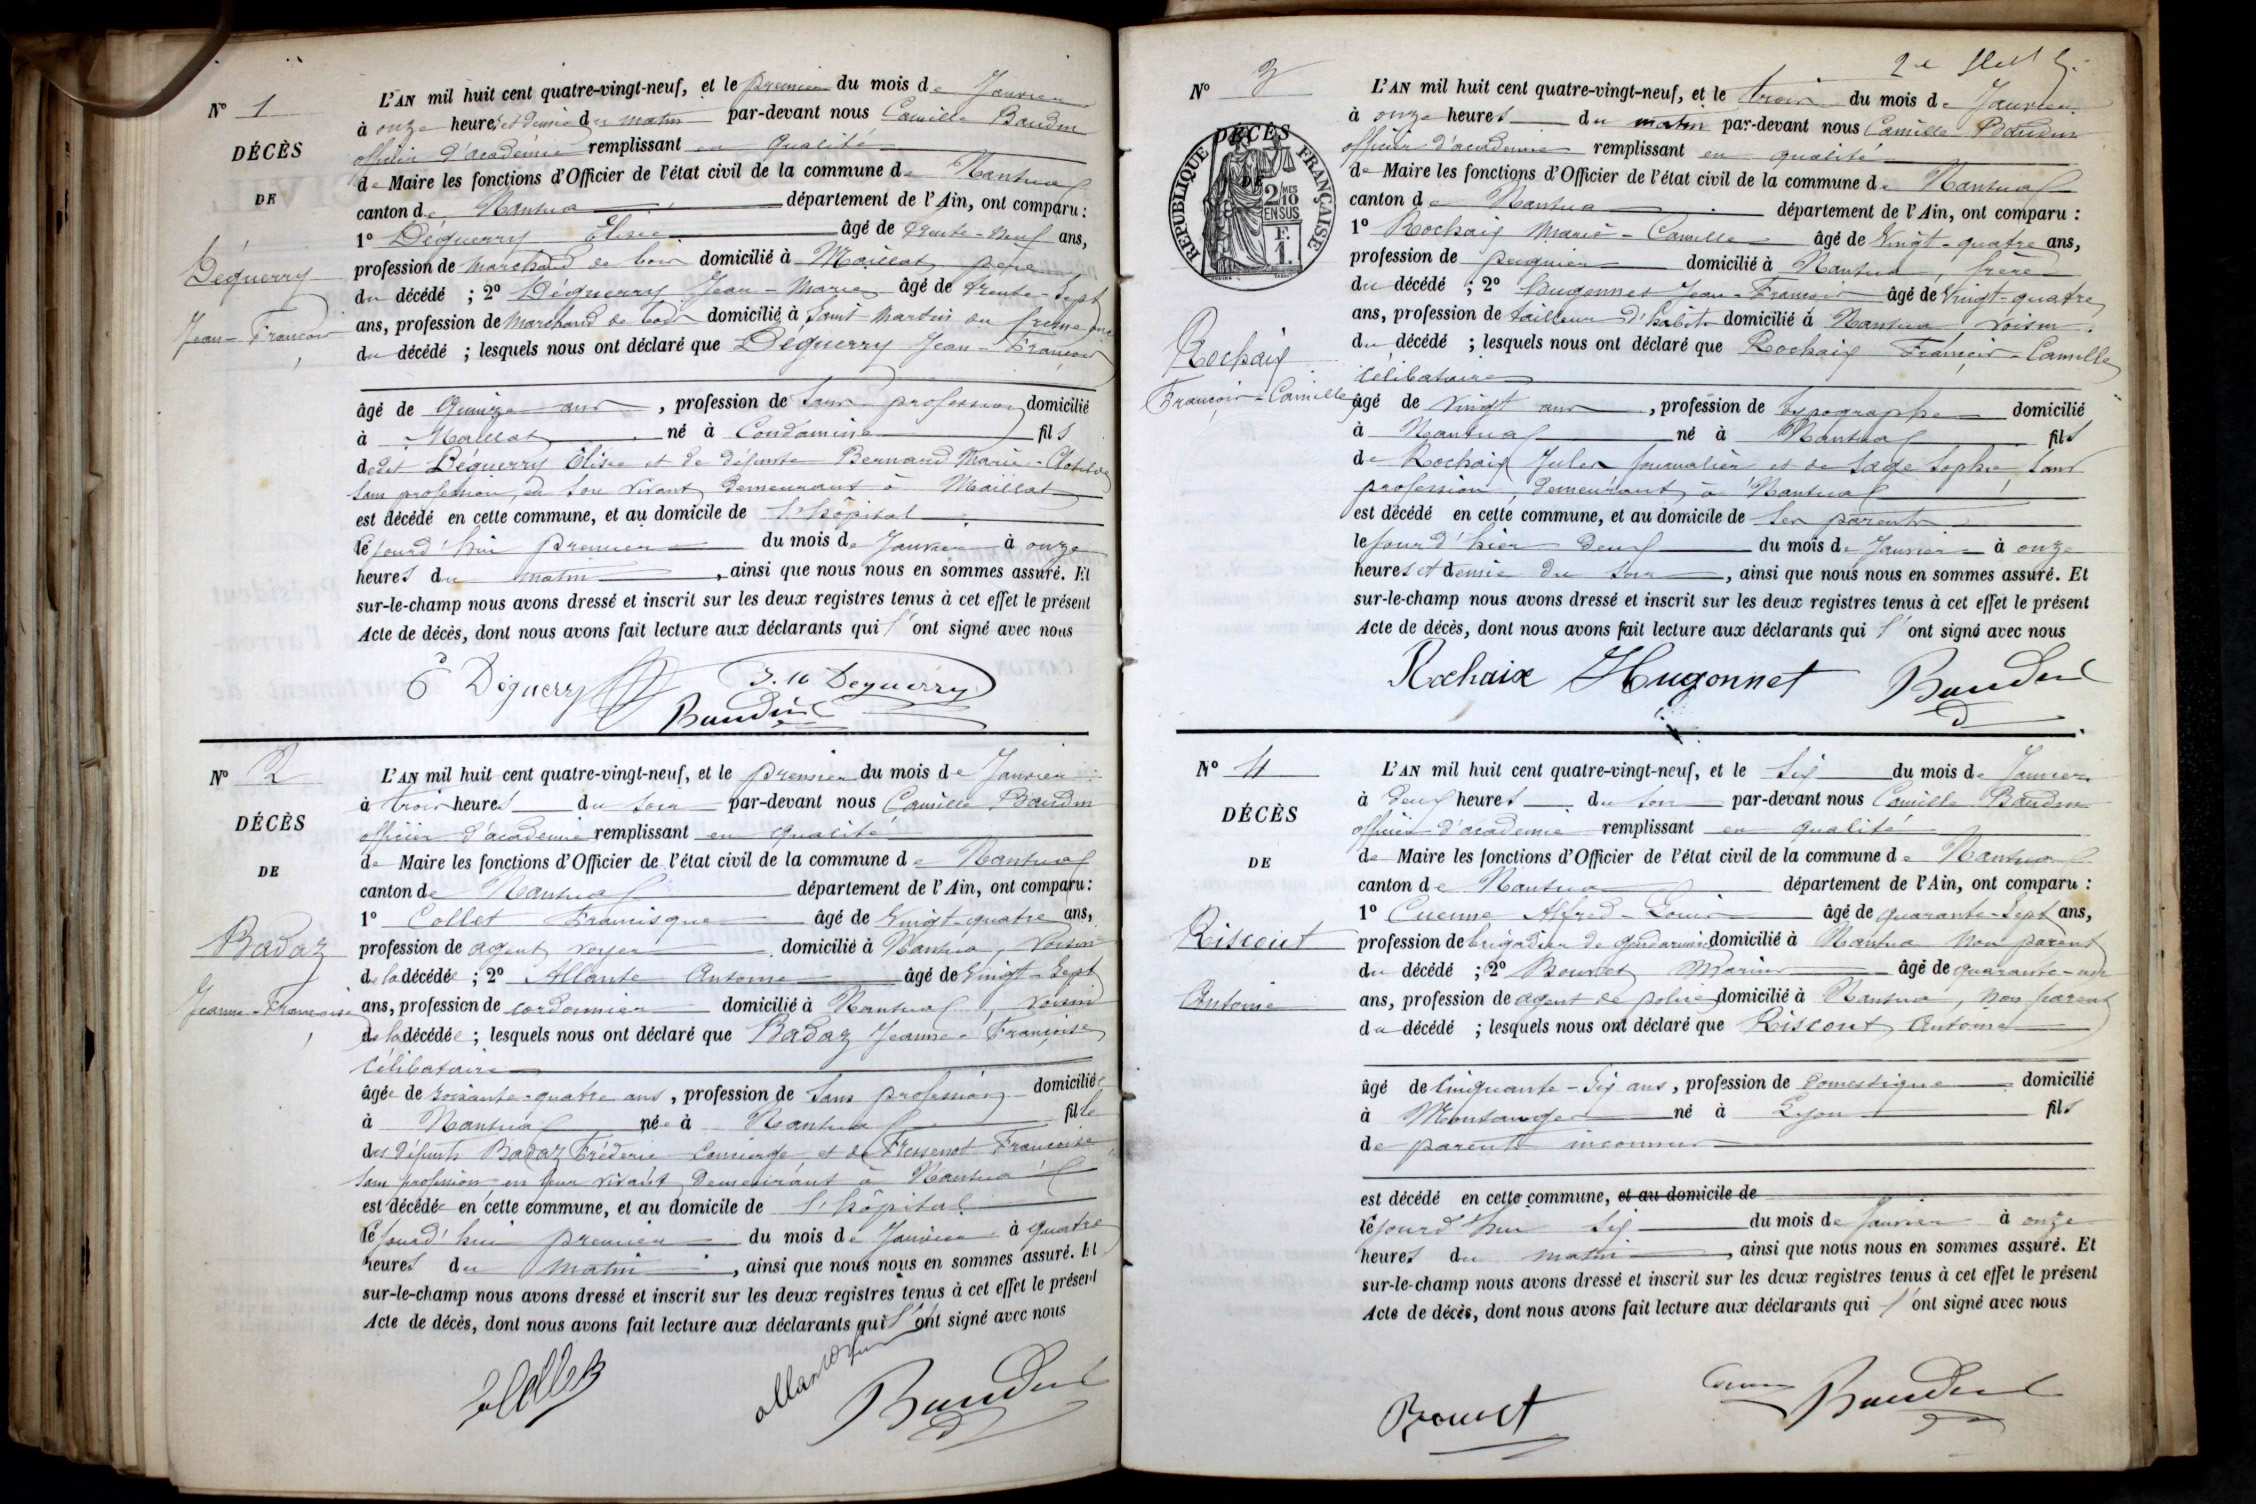 N° 1
DÉCÈS
DE
Déguerry
Jean-François
L'AN mil huit cent quatre-vingt-neuf, et le premier du mois de Janvier
à onze heures et demie du matin par-devant nous Camille Baudin
officier d'académie remplissant en qualité
de Maire les fonctions d'Officier de l'état civil de la commune de Nantua
canton de Nantua département de l'Ain, ont comparu :
1° Déguerry Élisée âgé de trente-neuf ans,
profession de marchand de bois domicilié à Maillat, père
du décédé ; 2° Déguerry Jean-Marie âgé de trente-sept
ans, profession de marchand de bois domicilié à Saint Martin du fresne, oncle
du décédé ; lesquels nous ont déclaré que Déguerry Jean-François
âgé de Quinze ans, profession de sans profession domicilié
à Maillat né à Condamine fils
dudit Déguerry Élisée et de défunte Bernard Marie-Clotilde
sans profession, en son vivant demeurant à Maillat
est décédé en cette commune, et au domicile de l'hôpital
le jourd'hui premier du mois de Janvier à onze
heures du matin, ainsi que nous nous en sommes assuré. Et
sur-le-champ nous avons dressé et inscrit sur les deux registres tenus à cet effet le présent
Acte de décès, dont nous avons fait lecture aux déclarants qui l'ont signé avec nous
É Déguerry J. M Deguerry
Baudin
N° 2
DÉCÈS
DE
Badaz
Jeanne-Françoise
L'AN mil huit cent quatre-vingt-neuf, et le premier du mois de Janvier
à trois heures du soir par-devant nous Camille Baudin
officier d'académie remplissant en qualité
de Maire les fonctions d'Officier de l'état civil de la commune de Nantua
canton de Nantua département de l'Ain, ont comparu :
1° Collet Francisque âgé de vingt-quatre ans,
profession de agent voyer domicilié à Nantua, voisin
de la décédée ; 2° Allante Antoine âgé de vingt-sept
ans, profession de cordonnier domicilié à Nantua, voisin
de la décédée ; lesquels nous ont déclaré que Badaz Jeanne-Françoise
célibataire
âgée de soixante-quatre ans, profession de sans profession domiciliée
à Nantua née à Nantua fille
des défunts Badaz Frédéric concierge, et de Françoise
sans profession en leur vivant demeurant à Nantua
est décédée en cette commune, et au domicile de l'hôpital
le jourd'hui premier du mois de Janvier à quatre
heures du matin, ainsi que nous nous en sommes assuré. Et
sur-le-champ nous avons dressé et inscrit sur les deux registres tenus à cet effet le présent
Acte de décès, dont nous avons fait lecture aux déclarants qui l'ont signé avec nous
Collet
Baudin
N° 3
DÉCÈS
DE
RÉPUBLIQUE FRANÇAISE
2/10 MES
EN SUS
F.
1.
Rochaix
François-Camille
L'AN mil huit cent quatre-vingt-neuf, et le trois du mois de Janvier
à onze heures du matin par-devant nous Camille Baudin
officier d'académie remplissant en qualité
de Maire les fonctions d'Officier de l'état civil de la commune de Nantua
canton de Nantua département de l'Ain, ont comparu :
1° Rochaix Marie-Camille âgé de vingt-quatre ans,
profession de peignier domicilié à Nantua, frère
du décédé ; 2° hugonnet Jean-François âgé de vingt-quatre
ans, profession de tailleur d'habits domicilié à Nantua, voisin
du décédé ; lesquels nous ont déclaré que Rochaix François-Camille
célibataire
âgé de vingt ans, profession de typographe domicilié
à Nantua né à Nantua fils
de Rochaix Jules journalier et de Sage Sophie, sans
profession, demeurant à Nantua
est décédé en cette commune, et au domicile de ses parents
le jour d'hier deux du mois de Janvier à onze
heures et demie du soir, ainsi que nous nous en sommes assuré. Et
sur-le-champ nous avons dressé et inscrit sur les deux registres tenus à cet effet le présent
Acte de décès, dont nous avons fait lecture aux déclarants qui l'ont signé avec nous
Rochaix Hugonnet Baudin
N° 4
DÉCÈS
DE
Riscout
Antoine
L'AN mil huit cent quatre-vingt-neuf, et le six du mois de Janvier
à deux heures du soir par-devant nous Camille Baudin
officier d'académie remplissant en qualité
de Maire les fonctions d'Officier de l'état civil de la commune de Nantua
canton de Nantua département de l'Ain, ont comparu :
1° Cuenne Alfred-Louis âgé de quarante-sept ans,
profession de brigadier de gendarmerie domicilié à Nantua non parent
du décédé ; 2° Bouvet Marius âgé de quarante-un
ans, profession de agent de police domicilié à Nantua, non parent
du décédé ; lesquels nous ont déclaré que Riscout Antoine
âgé de cinquante-six ans, profession de domestique domicilié
à Montanges né à Lyon fils
de parents inconnus
est décédé en cette commune, et au domicile de
le jourd'hui six du mois de Janvier à onze
heures du matin, ainsi que nous nous en sommes assuré. Et
sur-le-champ nous avons dressé et inscrit sur les deux registres tenus à cet effet le présent
Acte de décès, dont nous avons fait lecture aux déclarants qui l'ont signé avec nous
Bouvet Baudin